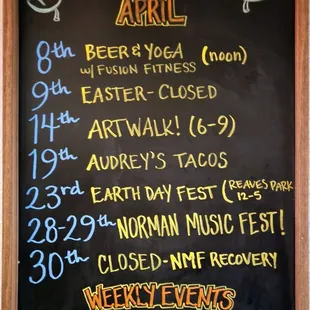 APRIL
8th BEER & YOGA (noon)
w/ FUSION FITNESS
9th EASTER - CLOSED
14th ARTWALK! (6-9)
19th AUDREY'S TACOS
23rd EARTH DAY FEST (REAVES PARK
12-5
28-29th NORMAN MUSIC FEST!
30th CLOSED - NMF RECOVERY
WEEKLY EVENTS